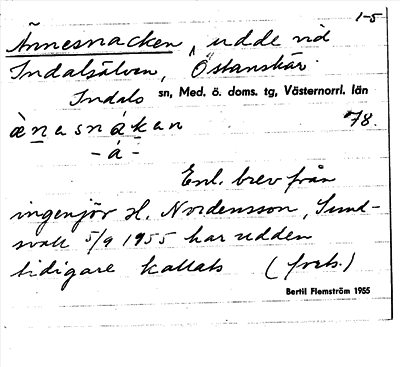 1-5
Ännesnacken, udde vid
Indalsälven, Östanskär
Indals sn, Med. ö. doms. tg, Västernorrl. län
ànasnákan 78.
-á-
Enl. brev från
ingenjör H. Nordensson, Sund-
svall 5/9 1955 har udden
tidigare kallats (forts.)
Bertil Flemström 1955